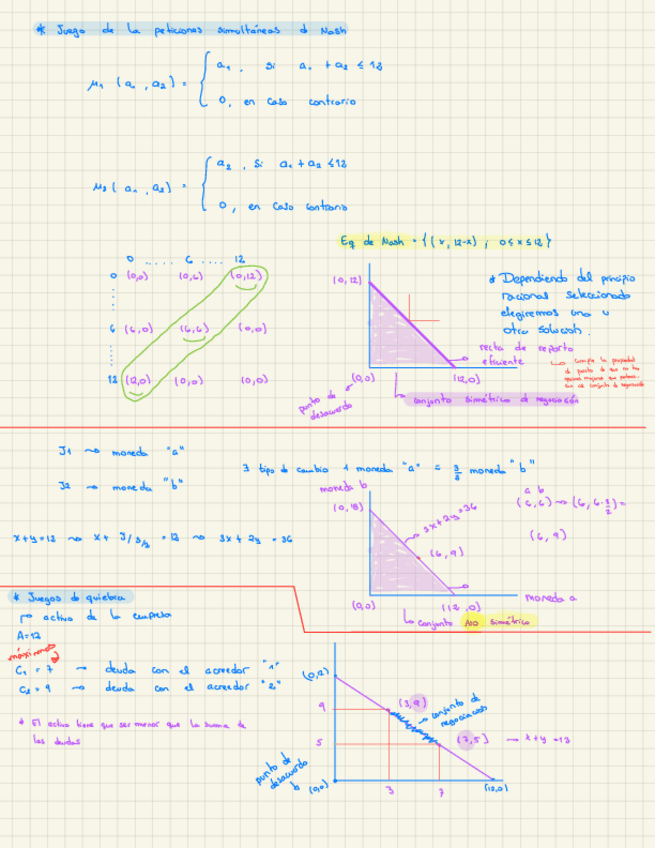 * Juego de la peticiones simultáneas d Nash
μ₁ (a₁, a₂) = { a₁, si a₁ + a₂ ≤ 12
0, en caso contrario
μ₂ (a₁, a₂) = { a₂, si a₁ + a₂ ≤ 12
0, en caso contrario
Eq de Nash = { (x, 12-x) ; 0 ≤ x ≤ 12 }
0 ..... 6 .... 12
0 (0,0) (0,6) (0,12)
6 (6,0) (6,6) (0,0)
12 (12,0) (0,0) (0,0)
(0,12)
(0,0)
(12,0)
punto de desacuerdo
recta de reparto
eficiente
conjunto simétrico de negociación
* Dependiendo del principio
racional seleccionado
elegiremos una u
otra solución.
J1 ~> moneda "a"
J2 ~> moneda "b"
3 tipo d cambio 1 moneda "a" = 3/2 moneda "b"
x+y=12 ~> x + y/3/2 = 12 ~> 3x + 2y = 36
moneda b
(0,18)
3x+2y=36
(6,9)
(0,0)
(12,0)
moneda a
a b
(6,6) ~> (6, 6·3/2) =
(6,9)
conjunto NO simétrico
* Juegos d quiebra
activo de la empresa
A=12
máximo
C₁ = 7 → deuda con el acreedor "1"
C₂ = 9 → deuda con el acreedor "2"
* El activo tiene que ser menor que la suma de
las deudas
(0,12)
9
5
(3,9)
conjunto de
negociación
(7,5) → x+y=12
punto de
desacuerdo
(0,0)
3
7
(12,0)